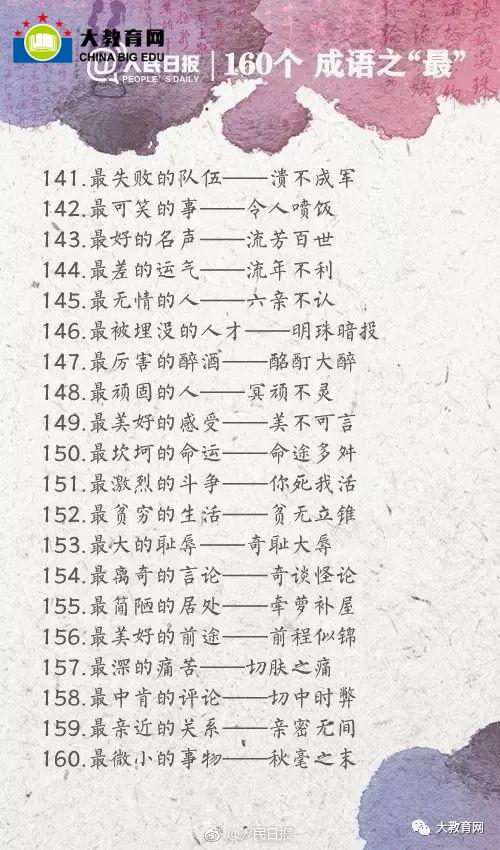 大教育网
CHINA BIG EDU
@人民日报
PEOPLE'S DAILY
160个 成语之“最”
141.最失败的队伍——溃不成军
142.最可笑的事——令人喷饭
143.最好的名声——流芳百世
144.最差的运气——流年不利
145.最无情的人——六亲不认
146.最被埋没的人才——明珠暗投
147.最厉害的醉酒——酩酊大醉
148.最顽固的人——冥顽不灵
149.最美好的感受——美不可言
150.最坎坷的命运——命途多舛
151.最激烈的斗争——你死我活
152.最贫穷的生活——贫无立锥
153.最大的耻辱——奇耻大辱
154.最离奇的言论——奇谈怪论
155.最简陋的居处——牵萝补屋
156.最美好的前途——前程似锦
157.最深的痛苦——切肤之痛
158.最中肯的评论——切中时弊
159.最亲近的关系——亲密无间
160.最微小的事物——秋毫之末
@人民日报
大教育网